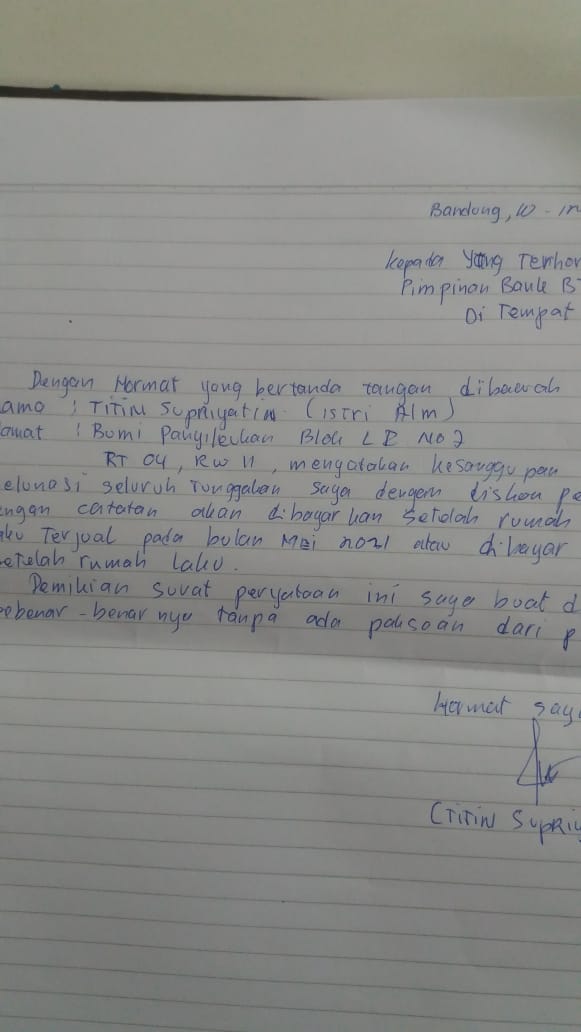 Bandung, 10 -
Kepada Yang Terhor
Pimpinan Bank B
Di Tempat
Dengan Hormat yang bertanda tangan dibawah
ama : TITIN Supriyatin (istri Alm)
amat : Bumi Panyileukan Blok L E No 2
RT 04, RW 11, mengatakan kesanggupan
elunasi seluruh Tunggakan saya dengan diskon pe
ngan catatan akan dibayarkan setelah rumah
aku Terjual pada bulan Mei 2021 atau dibayar
etelah rumah laku.
Demikian surat peryataan ini saya buat d
ebenar-benarnya tanpa ada paksaan dari p
Hormat saya
(TITIN Supriy